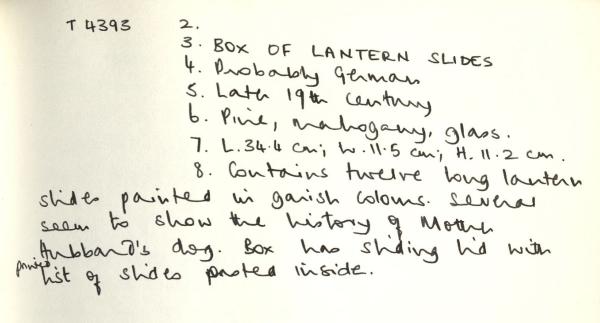 T 4393 2.
3. BOX OF LANTERN SLIDES
4. Probably German
5. Late 19th century
6. Pine, mahogany, glass.
7. L.34.4 cm; W.11.5 cm; H.11.2 cm.
8. Contains twelve long lantern
slides painted in garish colours. Several
seem to show the history of Mother
Hubbard's dog. Box has sliding lid with
printed list of slides pasted inside.